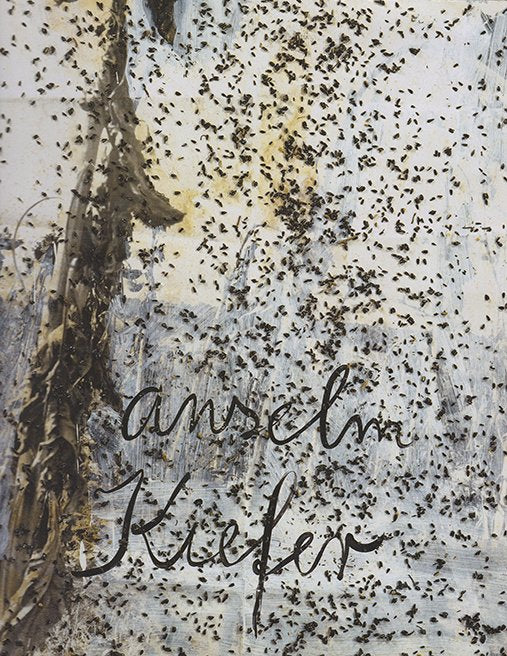 anselm
Kiefer